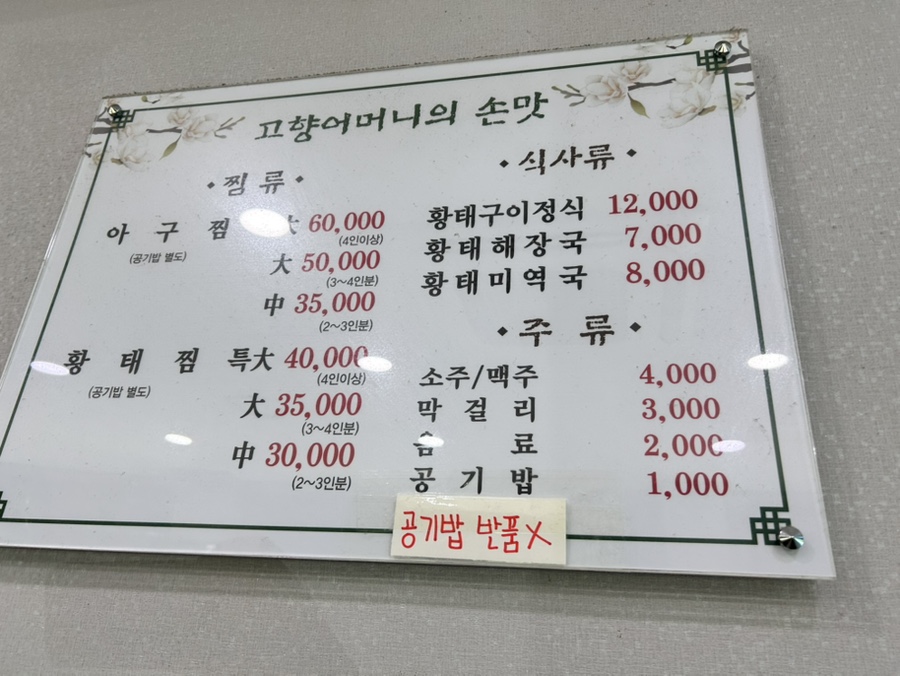 고향어머니의 손맛
• 찜 류 •
아 구 찜 大 60,000
(공기밥 별도) (4인이상)
大 50,000
(3~4인분)
中 35,000
(2~3인분)
황 태 찜 특大 40,000
(공기밥 별도) (4인이상)
大 35,000
(3~4인분)
中 30,000
(2~3인분)
• 식사류 •
황태구이정식 12,000
황태해장국 7,000
황태미역국 8,000
• 주 류 •
소주/맥주 4,000
막 걸 리 3,000
음 료 2,000
공 기 밥 1,000
공기밥 반품X